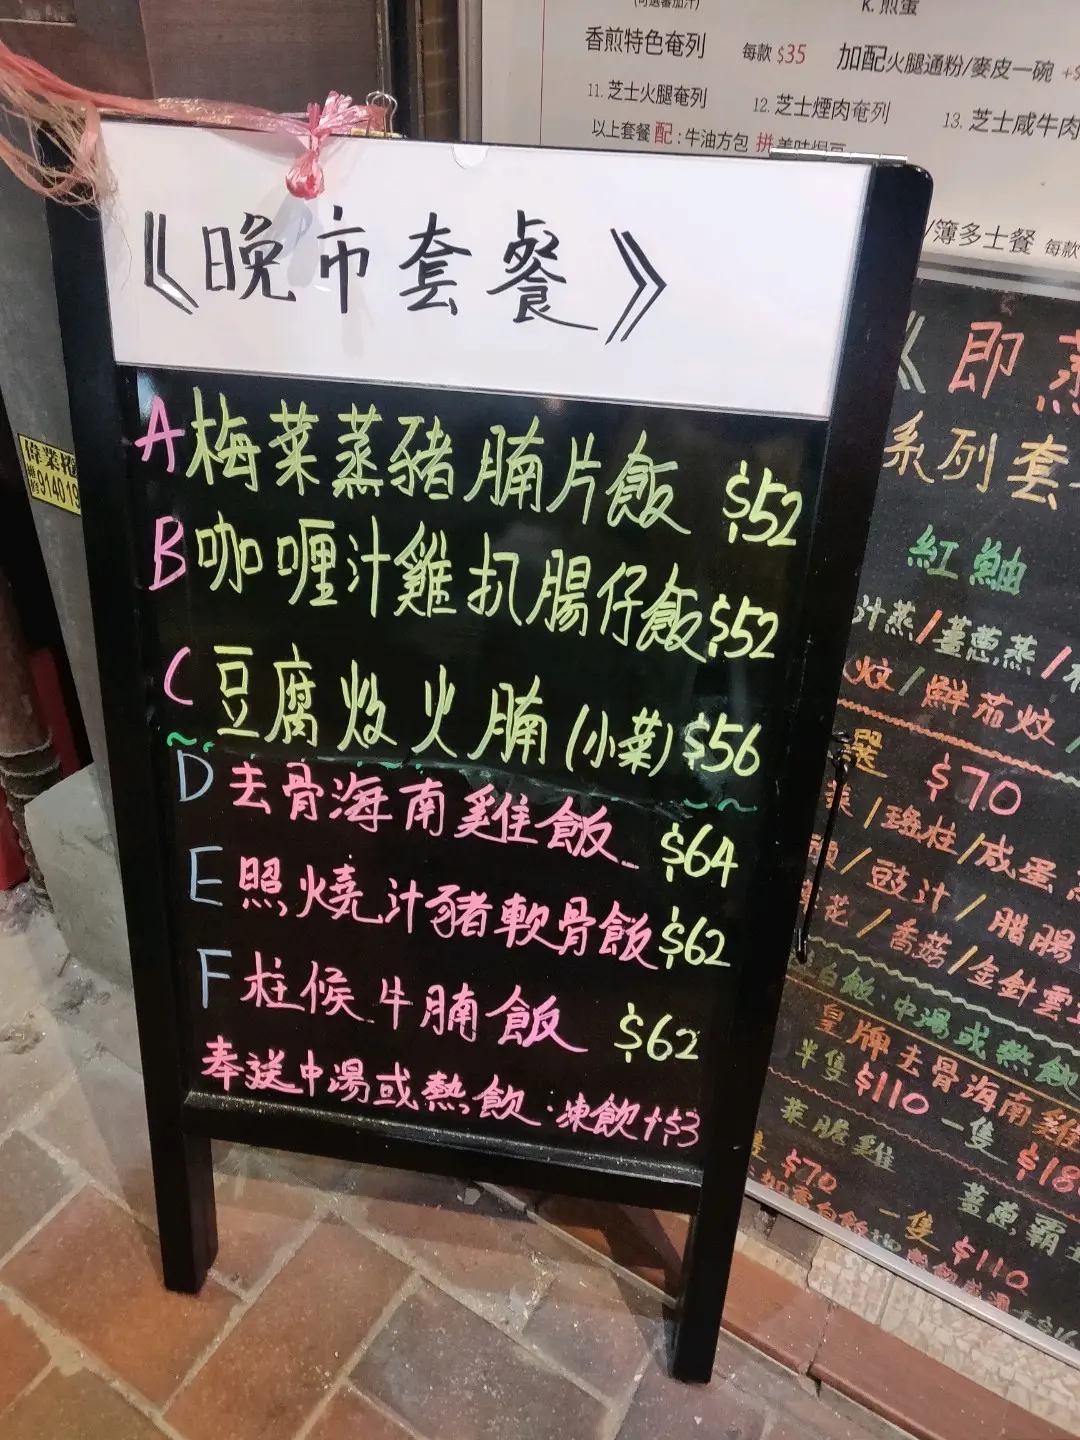 K. 煎蛋
香煎特色奄列 每款 $35 加配火腿通粉/麥皮一碗
11. 芝士火腿奄列 12. 芝士煙肉奄列 13. 芝士咸牛肉
以上套餐 配 : 牛油方包 拼
/簿多士餐 每款
《晚市套餐》
A 梅菜蒸豬腩片飯 $52
B 咖喱汁雞扒腸仔飯 $52
C 豆腐炆火腩 (小菜) $56
D 去骨海南雞飯 $64
E 照燒汁豬軟骨飯 $62
F 柱候牛腩飯 $62
奉送中湯或熱飲 · 凍飲+$3
《即蒸
系列套
紅鮋
汁蒸/薑蔥蒸/
炆/鮮茄炆/
選 $70
菜/瑤柱/咸蛋
/豉汁/腊腸
花/香菇/金針雲
白飯·中湯或熱飲
皇牌去骨海南雞
半隻 $110 一隻 $18
菜膽雞 薑蔥霸
$70 一隻 $110